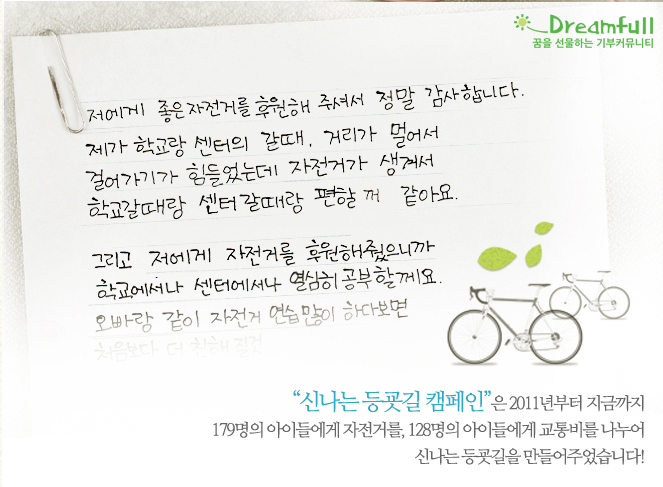 Dreamfull
꿈을 선물하는 기부커뮤니티
저에게 좋은 자전거를 후원해 주셔서 정말 감사합니다.
제가 학교랑 센터의 갈때, 거리가 멀어서
걸어가기가 힘들었는데 자전거가 생겨서
학교갈때랑 센터갈때랑 편할꺼 같아요.
그리고 저에게 자전거를 후원해줬으니까
학교에서나 센터에서나 열심히 공부할께요.
오빠랑 같이 자전거 연습많이 하다보면
처음보다 더 친해질것
“신나는 등굣길 캠페인”은 2011년부터 지금까지
179명의 아이들에게 자전거를, 128명의 아이들에게 교통비를 나누어
신나는 등굣길을 만들어주었습니다!